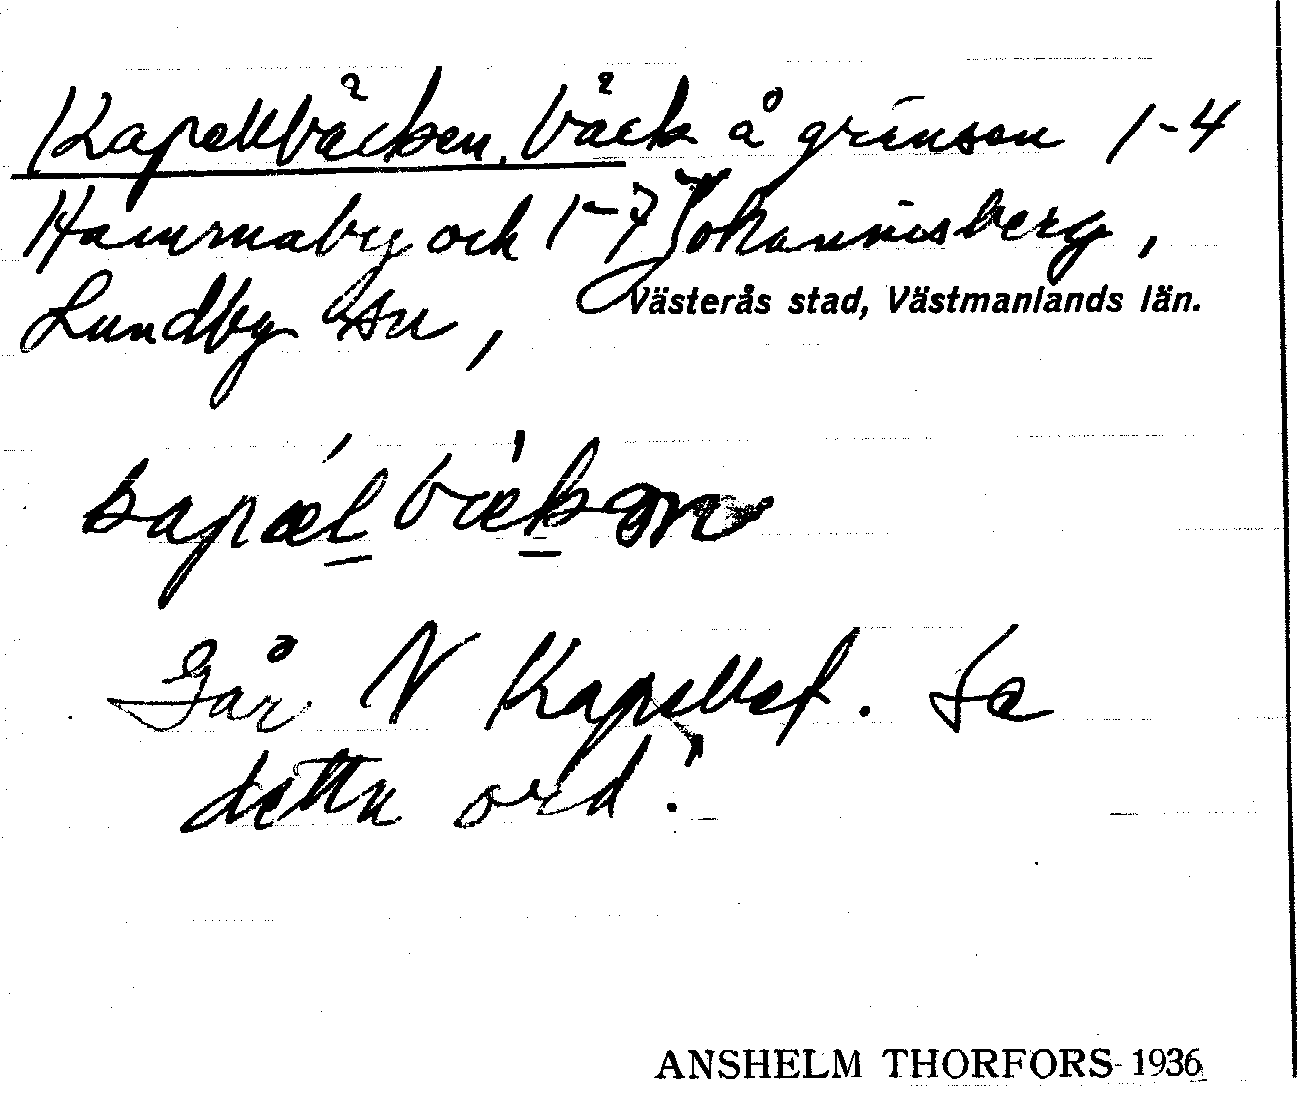 Kapellbäcken, bäck å gränsen 1-4
Hammaby och 1-7 Johannisberg,
Lundby sn,
Västerås stad, Västmanlands län.
kapæl bækən
Går N Kapellet. Se
detta ord!
ANSHELM THORFORS-1936